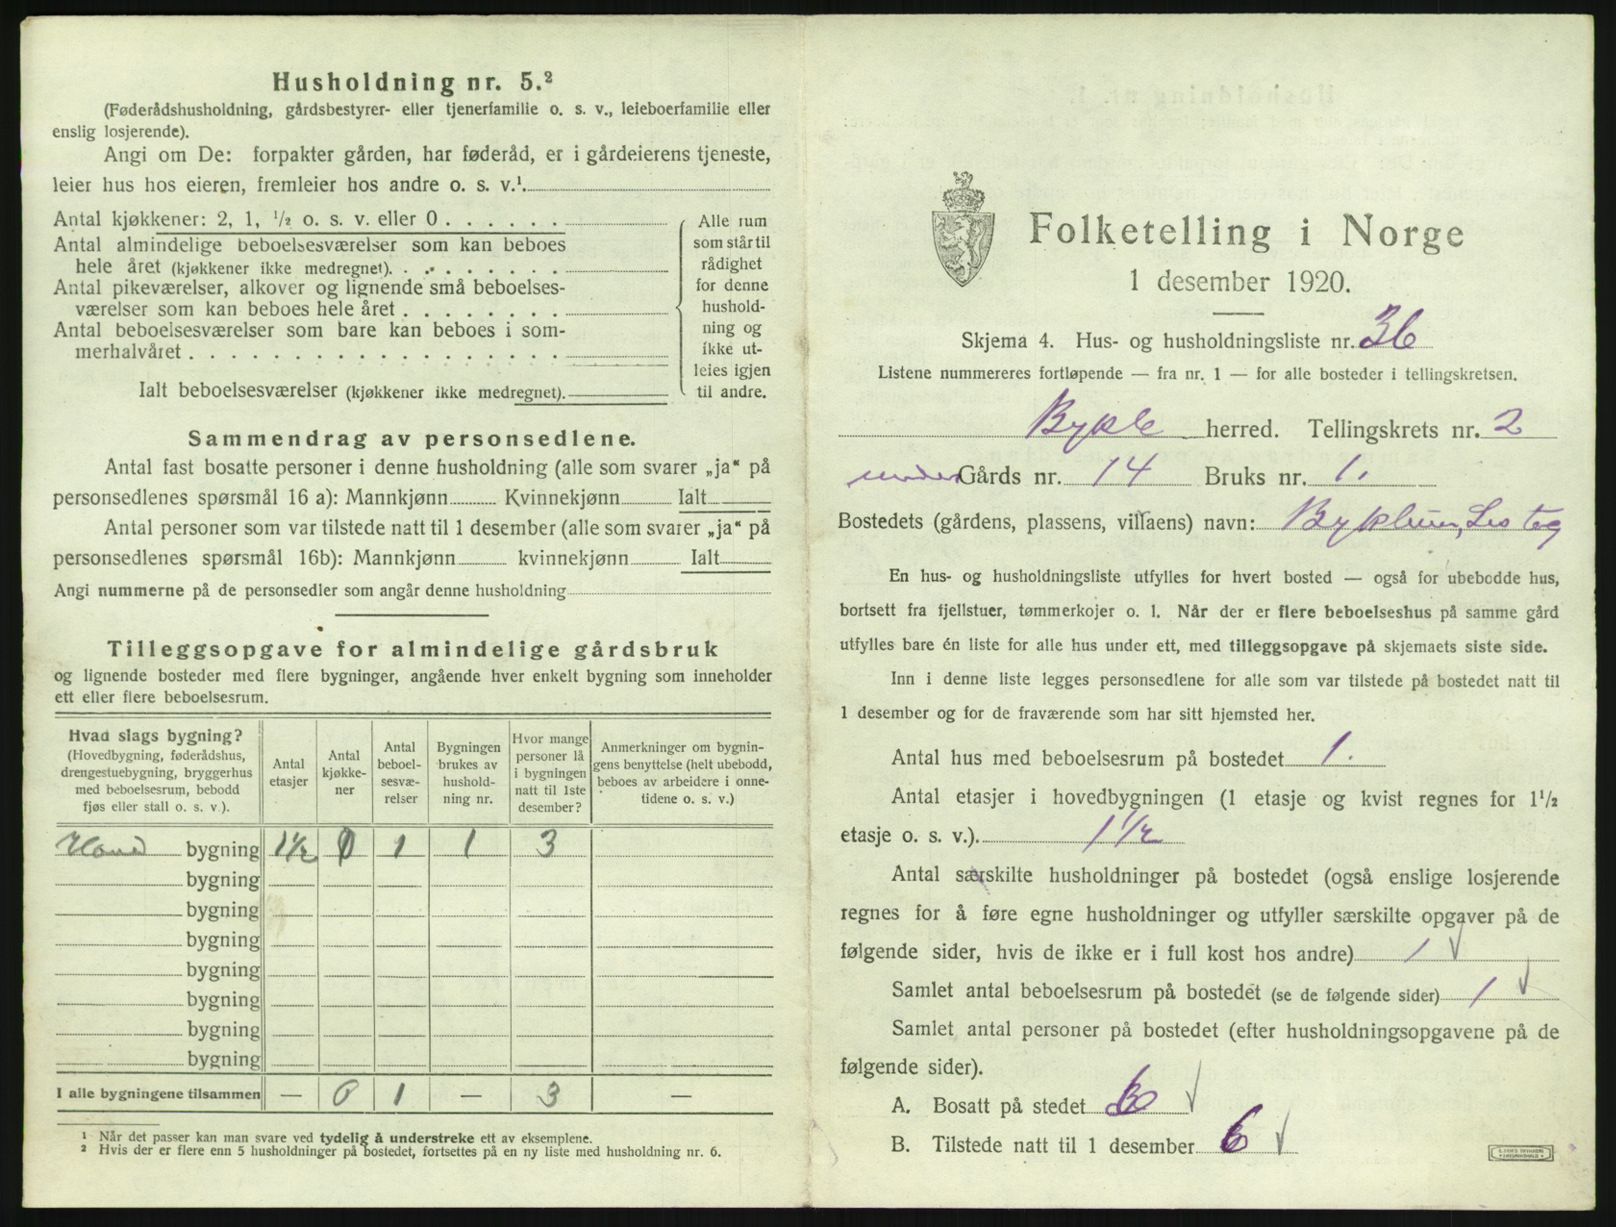 Husholdning nr. 5.²
(Føderådshusholdning, gårdsbestyrer- eller tjenerfamilie o. s. v., leieboerfamilie eller
enslig losjerende).
Angi om De: forpakter gården, har føderåd, er i gårdeierens tjeneste,
leier hus hos eieren, fremleier hos andre o. s. v.¹.
Antal kjøkkener: 2, 1, ½ o. s. v. eller 0
Antal almindelige beboelsesværelser som kan beboes
hele året (kjøkkener ikke medregnet).
Antal pikeværelser, alkover og lignende små beboelses-
værelser som kan beboes hele året
Antal beboelsesværelser som bare kan beboes i som-
merhalvåret
Ialt beboelsesværelser (kjøkkener ikke medregnet).
Alle rum
som står til
rådighet
for denne
hushold-
ning og
ikke ut-
leies igjen
til andre.
Sammendrag av personsedlene.
Antal fast bosatte personer i denne husholdning (alle som svarer „ja“ på
personsedlenes spørsmål 16 a): Mannkjønn Kvinnekjønn Ialt
Antal personer som var tilstede natt til 1 desember (alle som svarer „ja“ på
personsedlenes spørsmål 16b): Mannkjønn kvinnekjønn Ialt
Angi nummerne på de personsedler som angår denne husholdning
Tilleggsopgave for almindelige gårdsbruk
og lignende bosteder med flere bygninger, angående hver enkelt bygning som inneholder
ett eller flere beboelsesrum.
Hvad slags bygning?
(Hovedbygning, føderådshus,
drengestuebygning, bryggerhus
med beboelsesrum, bebodd
fjøs eller stall o. s. v.).
Antal
etasjer
Antal
kjøkke-
ner
Antal
beboel-
sesvæ-
relser
Bygningen
brukes av
hushold-
ning nr.
Hvor mange
personer lå
i bygningen
natt til 1ste
desember?
Anmerkninger om bygnin-
gens benyttelse (helt ubebodd,
beboes av arbeidere i onne-
tidene o. s. v.)
Hoved bygning 1½ 0 1 1 3
bygning
bygning
bygning
bygning
bygning
bygning
bygning
I alle bygningene tilsammen — 0 1 — 3 —
¹ Når det passer kan man svare ved tydelig å understreke ett av eksemplene.
² Hvis der er flere enn 5 husholdninger på bostedet, fortsettes på en ny liste med husholdning nr. 6.
Folketelling i Norge
1 desember 1920.
Skjema 4. Hus- og husholdningsliste nr. 36
Listene nummereres fortløpende — fra nr. 1 — for alle bosteder i tellingskretsen.
Bykle herred. Tellingskrets nr. 2
under Gårds nr. 14 Bruks nr. 1.
Bostedets (gårdens, plassens, villaens) navn: Byklum,
En hus- og husholdningsliste utfylles for hvert bosted — også for ubebodde hus,
bortsett fra fjellstuer, tømmerkojer o. l. Når der er flere beboelseshus på samme gård
utfylles bare én liste for alle hus under ett, med tilleggsopgave på skjemaets siste side.
Inn i denne liste legges personsedlene for alle som var tilstede på bostedet natt til
1 desember og for de fraværende som har sitt hjemsted her.
Antal hus med beboelsesrum på bostedet 1.
Antal etasjer i hovedbygningen (1 etasje og kvist regnes for 1½
etasje o. s. v.). 1½
Antal særskilte husholdninger på bostedet (også enslige losjerende
regnes for å føre egne husholdninger og utfyller særskilte opgaver på de
følgende sider, hvis de ikke er i full kost hos andre) 1
Samlet antal beboelsesrum på bostedet (se de følgende sider) 1
Samlet antal personer på bostedet (efter husholdningsopgavene på de
følgende sider).
A. Bosatt på stedet 6
B. Tilstede natt til 1 desember 6